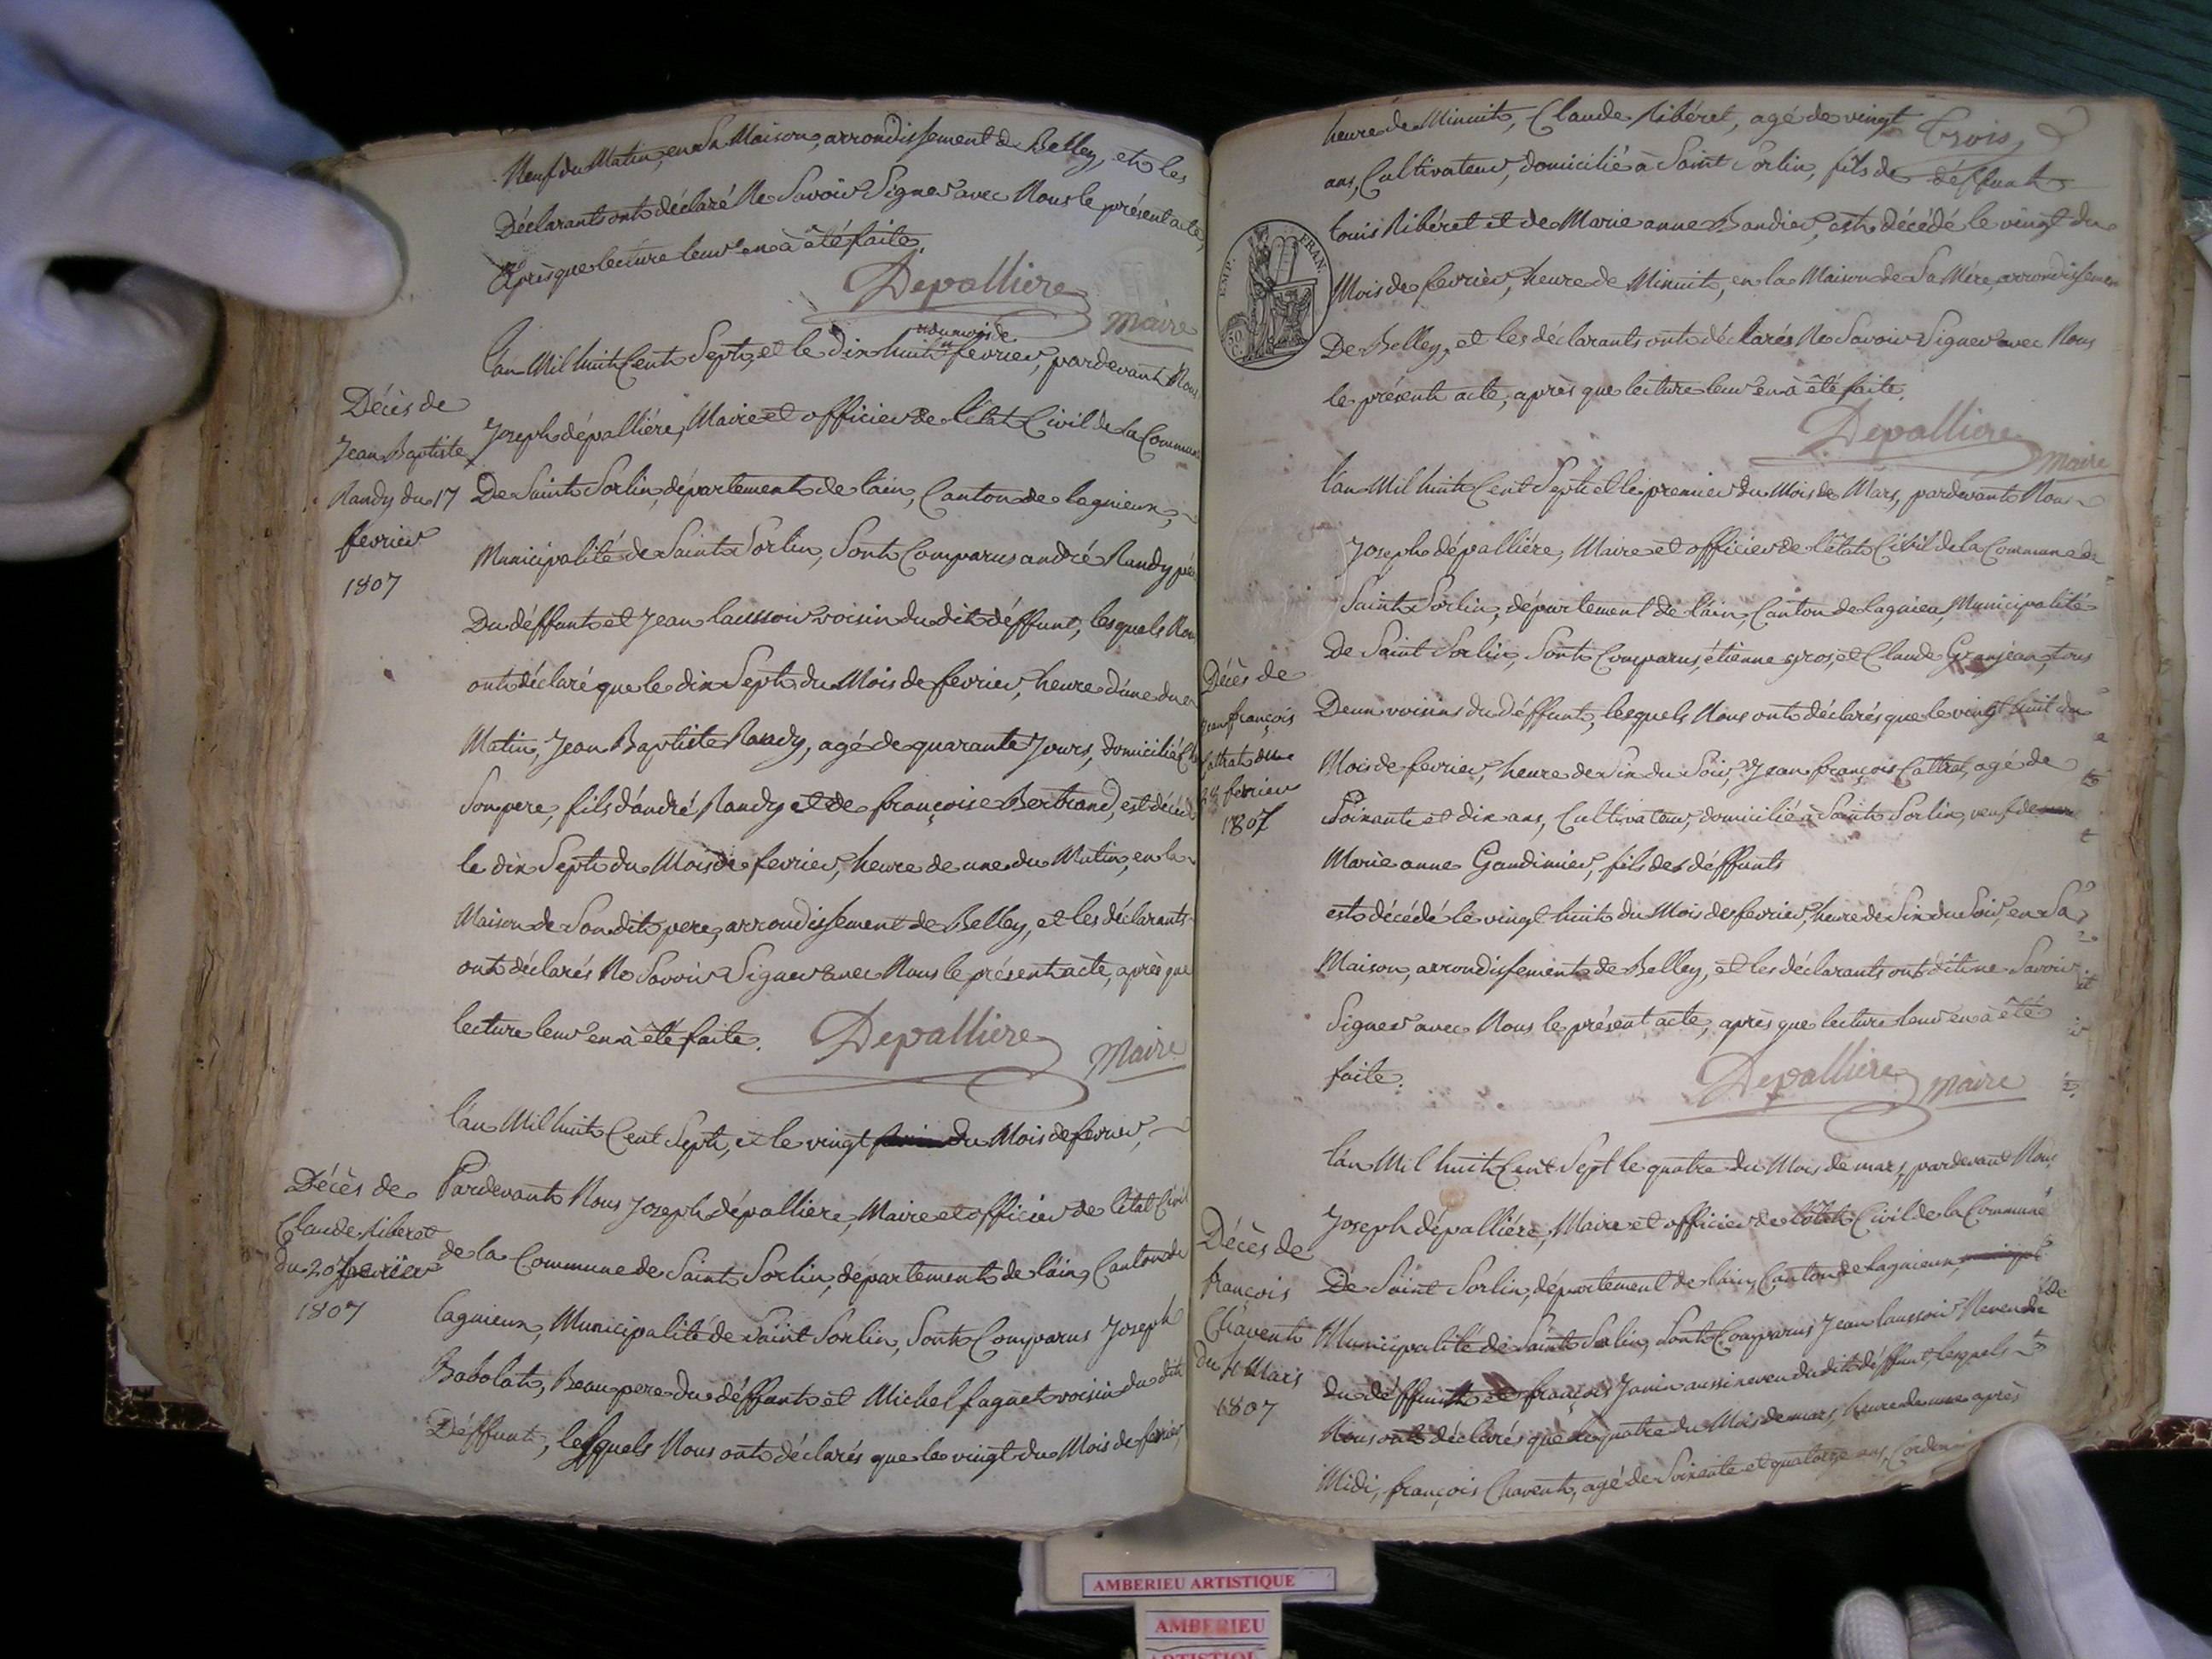 Neuf du Matin, en sa Maison, arrondissement de Belley, et les
Déclarants ont déclaré Ne Savoir Signer avec Nous le présent acte,
Après que lecture leur en à été faite.
Depalliere Maire
L'an Mil huit Cent Sept, et le dix huit du mois de fevrier, pardevant Nous
Décès de
Jean Baptiste
Randy du 17
fevrier
1807
Joseph dépalliére, Maire et officier de l'état Civil de la Commune
De Saint Sorlin, département de l'ain, Canton de lagnieux,
Municipalité de Saint Sorlin, Sont Comparus andré Randy père
Du déffunt et Jean laussoir voisin du dit déffunt, lesquels Nous
ont déclaré que le dix Sept du Mois de fevrier, heure d'une du
Matin, Jean Baptiste Randy, agé de quarante Jours, domicilié Chez
Son pere, fils d'andré Randy et de françoise Bertrand, est décédé
le dix Sept du Mois de fevrier, heure de une du Matin, en la
Maison de Son dit pere, arrondissement de Belley, et les déclarants
ont déclarés Ne Savoir Signer avec Nous le présent acte, après que
lecture leur en à été faite. Depalliere Maire
L'an Mil huit Cent Sept, et le vingt du Mois de fevrier,
Décès de
Claude Riberet
du 20 fevrier
1807
Pardevant Nous Joseph dépalliére, Maire et officier de l'état Civil
de la Commune de Saint Sorlin, département de l'ain, Canton de
lagnieux, Municipalité de Saint Sorlin, Sont Comparus Joseph
Babolat, Beau pere du déffunt et Michel faguet voisin du dit
Déffunt, lesquels Nous ont déclarés que le vingt du Mois de fevrier,
heure de Minuit, Claude Ribéret, agé de vingt Trois
ans, Cultivateur, domicilié à Saint Sorlin, fils de déffunt
Louis Ribéret et de Marie anne Bandier, est décédé le vingt du
EMP. FRAN.
50 C.
Mois de fevrier, heure de Minuit, en la Maison de Sa Mére arrondissement
De Belley, et les déclarants ont déclarés Ne Savoir Signer avec Nous
le présent acte, après que lecture leur en à été faite.
Depalliere Maire
L'an Mil huit Cent Sept et le premier du Mois de Mars, pardevant Nous
Joseph dépalliére, Maire et officier de l'état Civil de la Commune de
Saint Sorlin, département de l'ain, Canton de lagnieu, Municipalité
de Saint Sorlin, Sont Comparus, étienne gros, et Claude Granjean, tous
Décès de
Jean françois
Cattrat du
28 fevrier
1807
Deux voisins du déffunt, lesquels Nous ont déclarés que le vingt huit du
Mois de fevrier, heure de Six du Soir, Jean françois Cattrat, agé de
Soixante et dix ans, Cultivateur, domicilié à Saint Sorlin, veuf de
Marie anne Gandinier, fils des déffunts
est décédé le vingt huit du Mois de fevrier, heure de Six du Soir, en Sa
Maison, arrondissement de Belley, et les déclarants ont dit ne Savoir
Signer avec Nous le présent acte, après que lecture leur en à été
faite. Depalliere Maire
L'an Mil huit Cent Sept le quatre du Mois de mars, pardevant Nous
Décès de
françois
Chavent
du 4 Mars
1807
Joseph dépalliére, Maire et officier de l'état Civil de la Commune
De Saint Sorlin, département de l'ain, Canton de lagnieux,
Municipalité de Saint Sorlin, Sont Comparus Jean laussoir Neveu
du déffunt et françois Janin aussi neveu du dit déffunt, lesquels
Nous ont déclarés que le quatre du Mois de mars, heure de une après
Midi, françois Chavent, agé de Soixante et quatorze ans,
AMBERIEU ARTISTIQUE
AMBERIEU
ARTISTIQUE